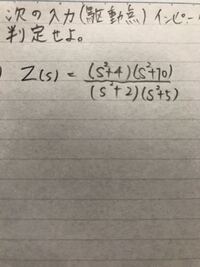 次の入力(駆動点)インピー
判定せよ。
) Z(s) = (s²+4)(s²+10) / (s²+2)(s²+5)